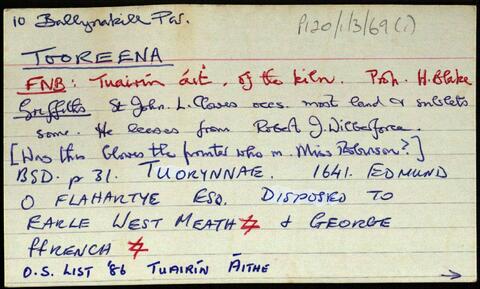 10 Ballynakill Par.
P120/1/3/69(i)
TOOREENA
FNB: Tuairín áit, of the kiln. Prop. H. Blake
Griffiths St John. L. Cloves occs. most land & sublets
some. He leases from Robert J. Wilberforce.
[Was this Cloves the printer who m. Miss Robinson?]
BSD. p 31. TUORYNNAE. 1641. EDMUND
O FLAHARTYE ESQ. DISPOSED TO
EARLE WEST MEATH & GEORGE
FFRENCH
O.S. LIST '86 TUAIRÍN ÁITHE
→